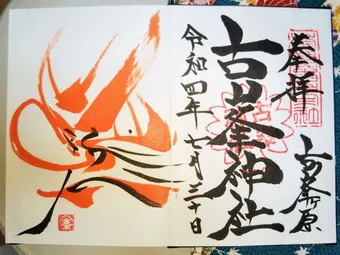 奉拝
古峯ヶ原
古峯神社
令和四年七月三十日